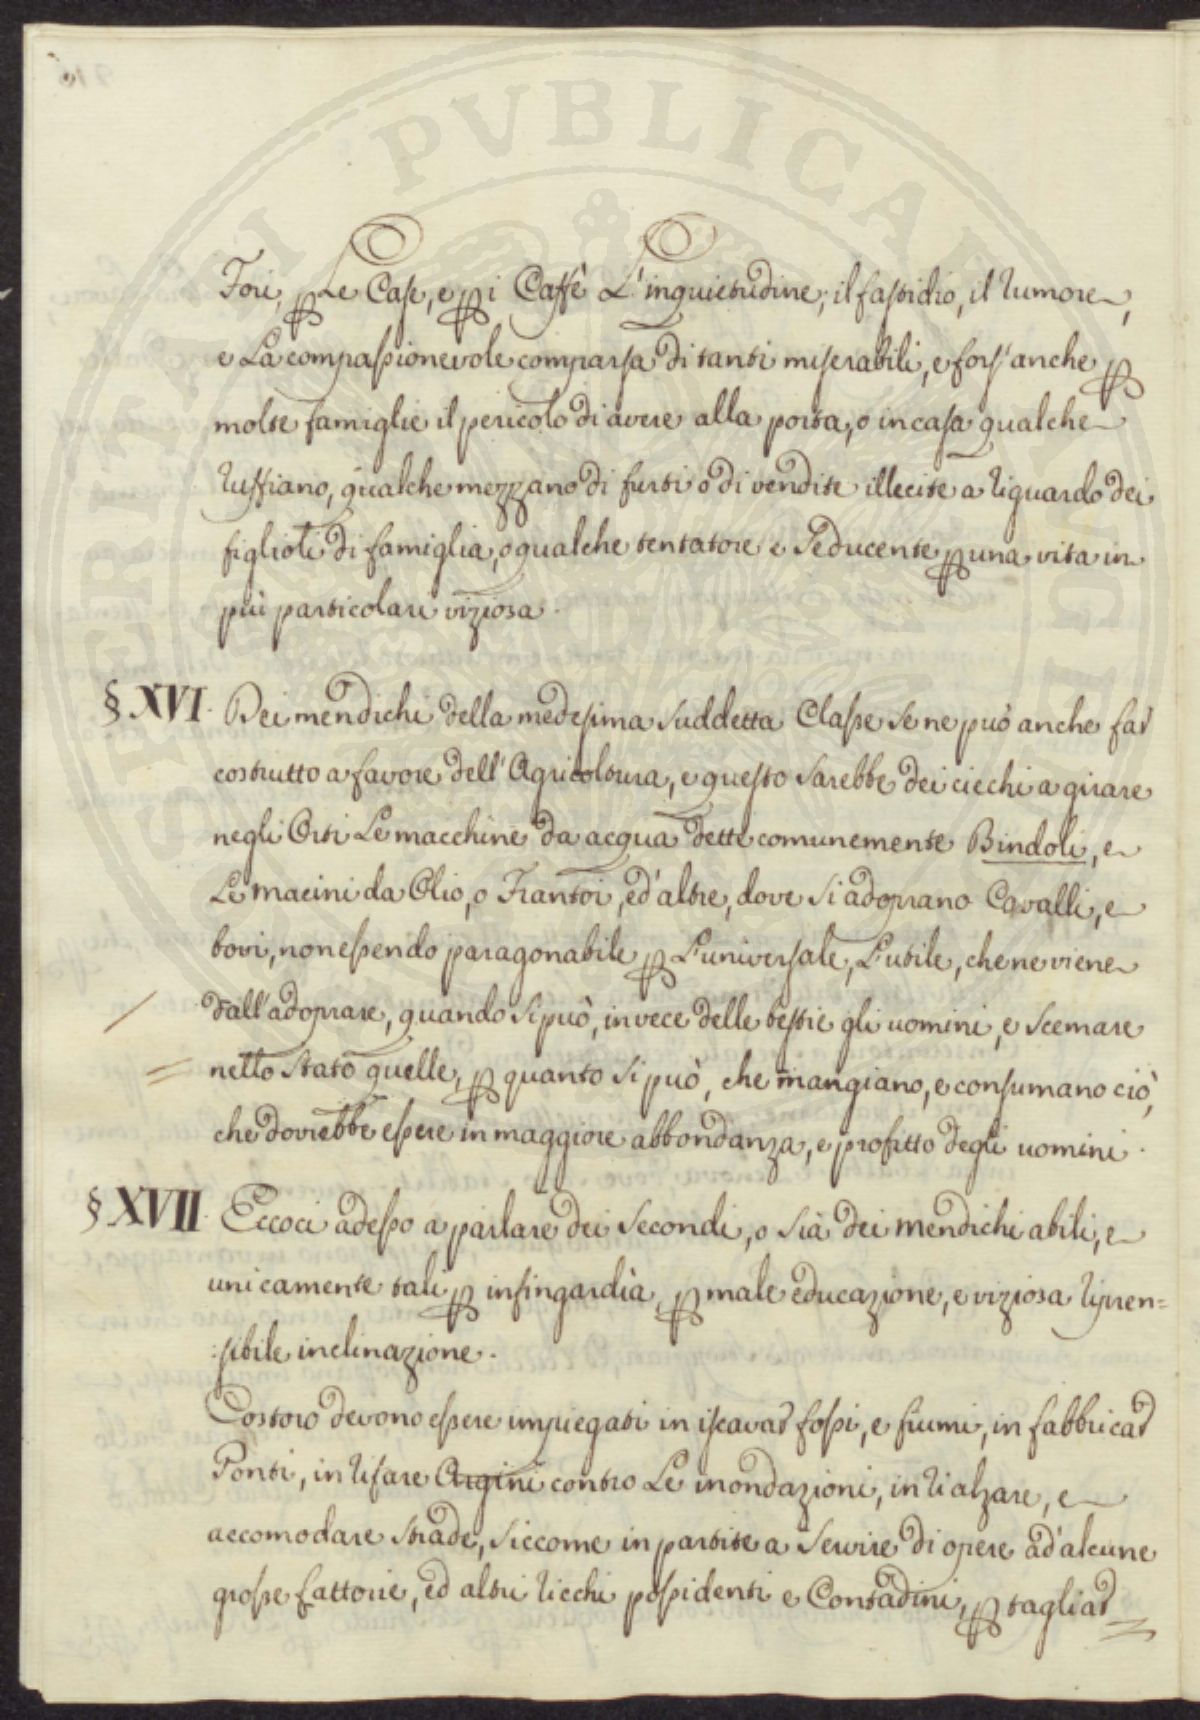 Fori, ꝑ Le Case, e ꝑ i Caffè L'inquietudine, il fastidio, il rumore,
e La compassionevole comparsa di tanti miserabili, e fors'anche ꝑ
molte famiglie il pericolo di avere alla porta, o in casa qualche
ruffiano, qualche mezzano di furti o di vendite illecite a riguardo dei
figlioli di famiglia, o qualche tentatore e Seducente ꝑ una vita in
più particolare viziosa.
§ XVI. Dei mendichi della medesima suddetta Classe se ne può anche far
costrutto a favore dell'Agricoltura, e questo sarebbe dei ciechi a girare
negli Orti Le macchine da acqua dette comunemente Bindoli, e
Le macini da Olio, o Frantoi, ed'altre, dove si adoprano Cavalli, e
bovi, non essendo paragonabile ꝑ L'universale, L'utile, che ne viene
dall'adoprare, quando si può, invece delle bestie gli uomini, e scemare
nello stato quelle, ꝑ quanto si può, che mangiano, e consumano ciò,
che dovrebbe essere in maggiore abbondanza, e profitto degli uomini.
§ XVII. Eccoci adesso a parlare dei secondi, o sia dei mendichi abili, e
unicamente tali ꝑ infingardìa, ꝑ male educazione, e viziosa ripren=
:sibile inclinazione.
Costoro devono essere impiegati in iscavar fossi, e fiumi, in fabbricar
Ponti, in rifare Argini contro Le inondazioni, in rialzare, e
accomodare strade, siccome in partite a servire di opere ad'alcune
grosse fattorie, ed altri ricchi possidenti e Contadini, ꝑ tagliar
PVBLICAE